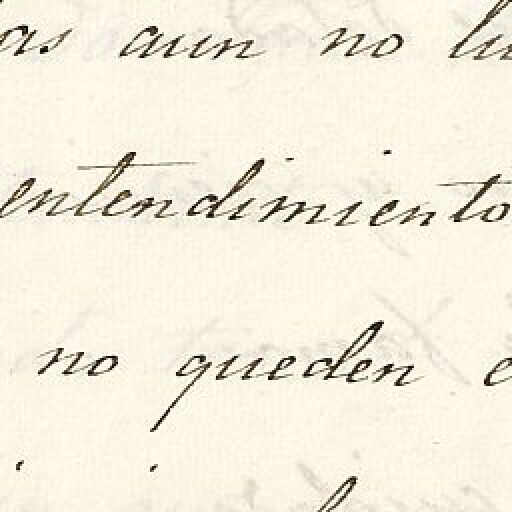 as aun no
entendimiento
no queden